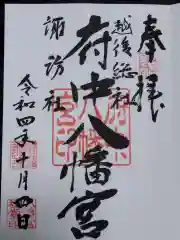 奉拝
越後総社
府中八幡宮
諏訪社
令和四年十月四日